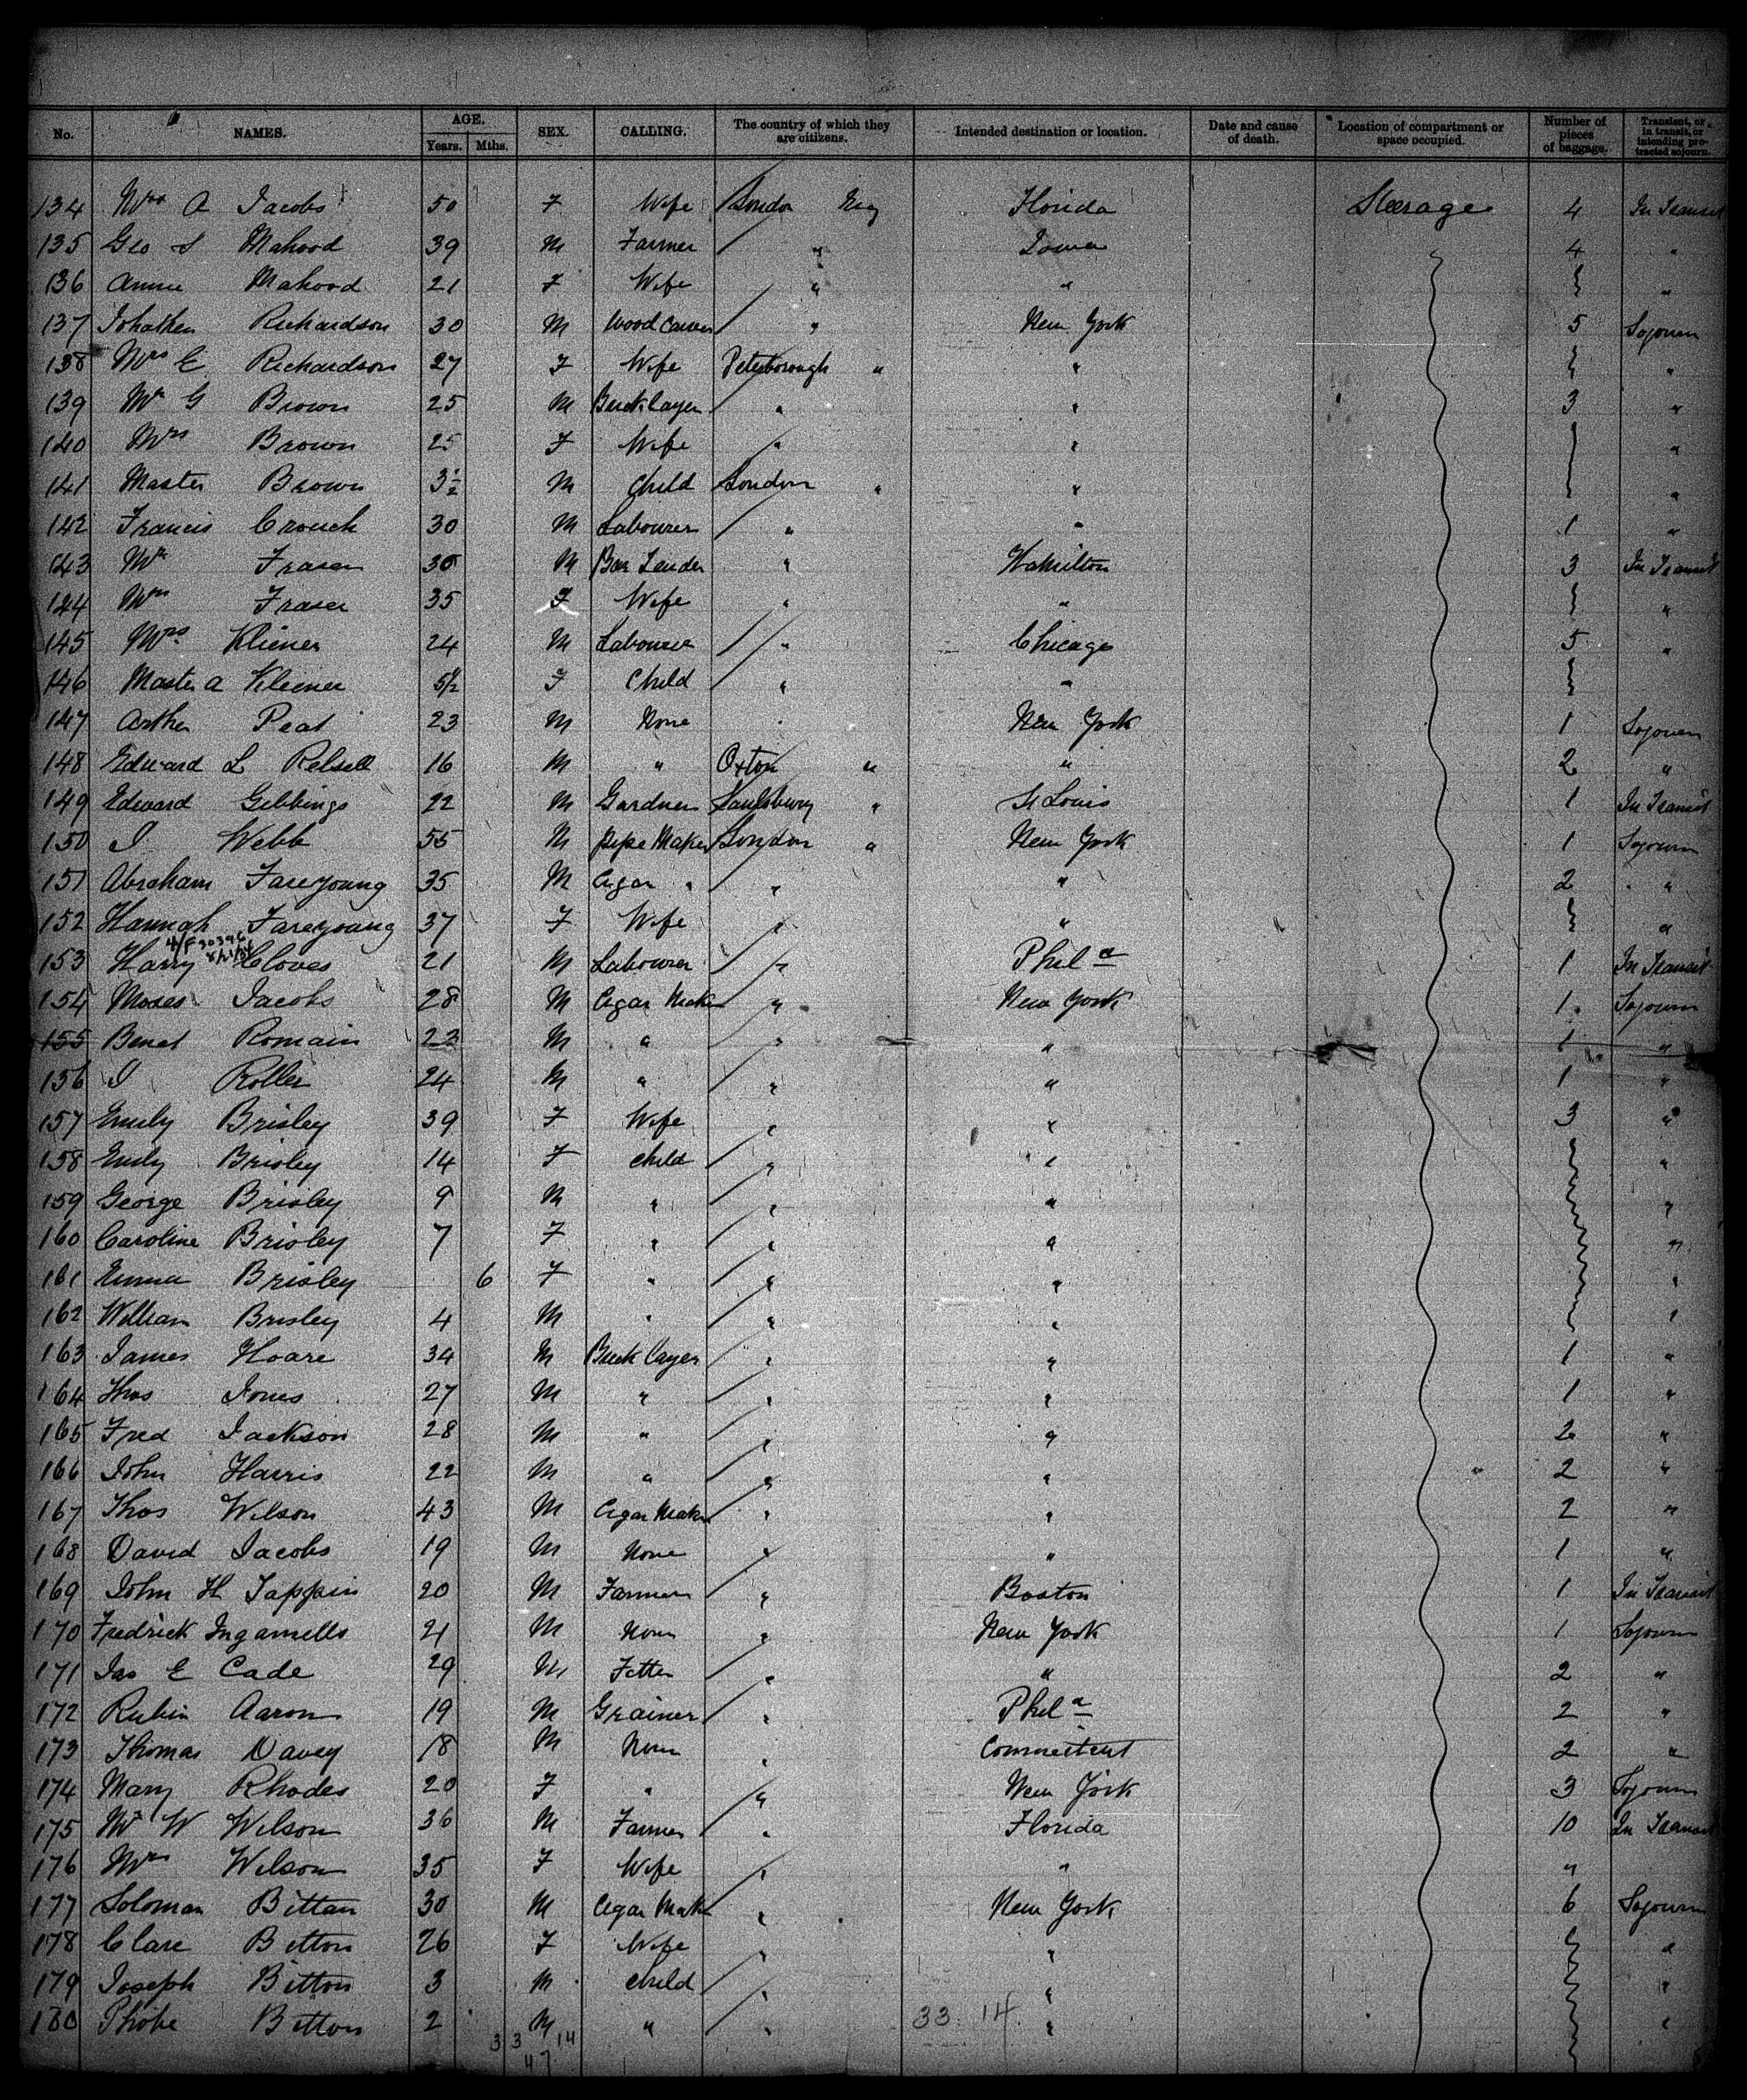 No. NAMES. AGE. Years. Mths. SEX. CALLING. The country of which they are citizens. Intended destination or location. Date and cause of death. Location of compartment or space occupied. Number of pieces of baggage. Transient, or in transit, or intending protracted sojourn.
134 Mrs A Jacobs 50 F Wife London Eng Florida Steerage 4 In Transit
135 Geo S Mahood 39 M Farmer " Iowa 4 "
136 Annie Mahood 21 F Wife " " "
137 Johathen Richardson 30 M Wood Carver " New York 5 Sojourn
138 Mrs E Richardson 27 F Wife Peterborough " " "
139 Mr G Brown 25 M Bricklayer " " 3 "
140 Mrs Brown 25 F Wife " " "
141 Master Brown 3½ M Child London " " "
142 Francis Crouch 30 M Labourer " " 1 "
143 Mr Fraser 30 M Bar Tender " Hamilton 3 In Transit
144 Mrs Fraser 35 F Wife " " "
145 Mrs Kliener 24 M Labourer " Chicago 5 "
146 Master A Kliener 5½ F Child " "
147 Arther Peat 23 M None " New York 1 Sojourn
148 Edward L Relsell 16 M " Oxton " " 2 "
149 Edward Gibbings 22 M Gardner Saulsbury " St Louis 1 In Transit
150 J Webb 55 M Pipe Maker London " New York 1 Sojourn
151 Abraham Fareyoung 35 M Cigar " " " 2 "
152 Hannah Fareyoung 37 F Wife " " "
153 Harry Cloves 21 M Labourer " Phila 1 In Transit
154 Moses Jacobs 28 M Cigar Maker " New York 1 Sojourn
155 Benet Romain 22 M " " " 1 "
156 J Roller 24 M " " " 1 "
157 Emily Brisley 39 F Wife " " 3 "
158 Emily Brisley 14 F Child " " "
159 George Brisley 9 M " " " "
160 Caroline Brisley 7 F " " " "
161 Emma Brisley 6 F " " " "
162 William Brisley 4 M " " " "
163 James Hoare 34 M Bricklayer " " 1 "
164 Thos Jones 27 M " " " 1 "
165 Fred Jackson 28 M " " " 2 "
166 John Harris 22 M " " " 2 "
167 Thos Wilson 43 M Cigar Maker " " 2 "
168 David Jacobs 19 M None " " 1 "
169 John H Tappin 20 M Farmer " Boston 1 In Transit
170 Fredrick Ingamells 21 M None " New York 1 Sojourn
171 Jas E Cade 29 M Fitter " " 2 "
172 Rubin Aaron 19 M Grainer " Phila 2 "
173 Thomas Davey 18 M None " Connecticut 2 "
174 Mary Rhodes 20 F " " New York 3 Sojourn
175 Mr W Wilson 36 M Farmer " Florida 10 In Transit
176 Mrs Wilson 35 F Wife " " "
177 Soloman Bittan 30 M Cigar Maker " New York 6 Sojourn
178 Clare Bitton 26 F Wife " " "
179 Joseph Bitton 3 M Child " " "
180 Phobe Bitton 2 M " " " "
33 14 33 14
47